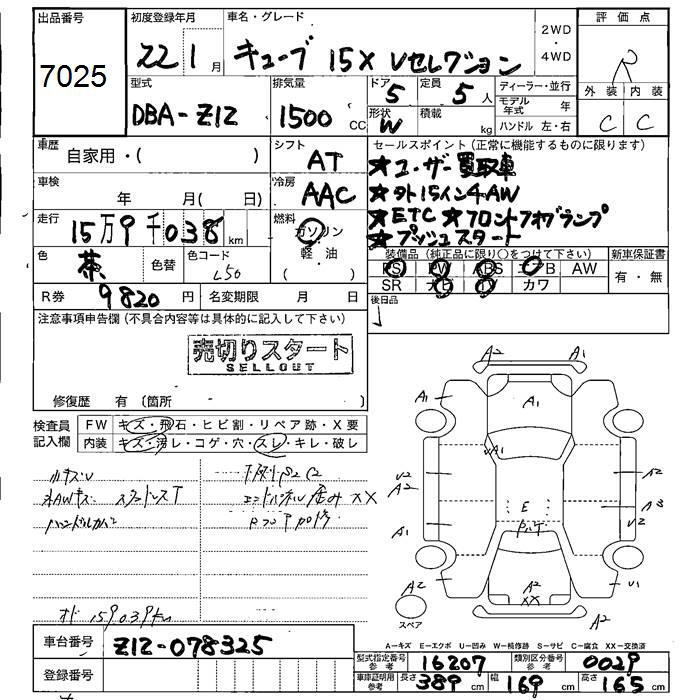 出品番号
7025
初度登録年月
22 1月
車名・グレード
キューブ 15X Vセレクション
2WD
・
4WD
評価点
R
外装 内装
C C
型式
DBA-Z12
排気量
1500 CC
ドア
5
定員
5人
形状
W
積載
kg
ディーラー・並行
モデル年式 年
ハンドル 左・右
車歴
自家用・( )
シフト
AT
セールスポイント(正常に機能するものに限ります)
★ユーザー買取車
★外15イン4AW
★ETC ★フロントフォグランプ
★プッシュスタート
車検
年 月( 日)
冷房
AAC
走行
15万9千038km
燃料
ガソリン
軽・油
( )
色
茶
色替
色コード
L50
装備品(純正品に限り○をつけて下さい)
PS PW ABS エアB AW
SR ナビ TV カワ
新車保証書
有・無
R券 9820円
名変期限 月 日
後日品
注意事項申告欄(不具合内容等は具体的に記入して下さい)
売切りスタート
SELLOUT
修復歴 有(箇所 )
検査員記入欄
FW キズ・飛石・ヒビ割・リペア跡・X要
内装 キズ・汚レ・コゲ・穴・スレ・キレ・破レ
小キズU
外AWキズ スタッドレスT
ハンドルカバー
下廻りS2C2
エンドパネル歪み XX
オド 159039km
A2 A1
A1 A1
UA1
U2 A2
A2 A3
E U2
A1
A2 U1
A2
XX
A2
スペア
A-キズ E-エクボ U-凹み W-補修跡 S-サビ C-腐食 XX-交換済
車台番号
Z12-078325
登録番号
型式指定番号 参考
16207
類別区分番号 参考
0029
車庫証明用 参考
長さ 389cm
幅 169cm
高さ 165cm